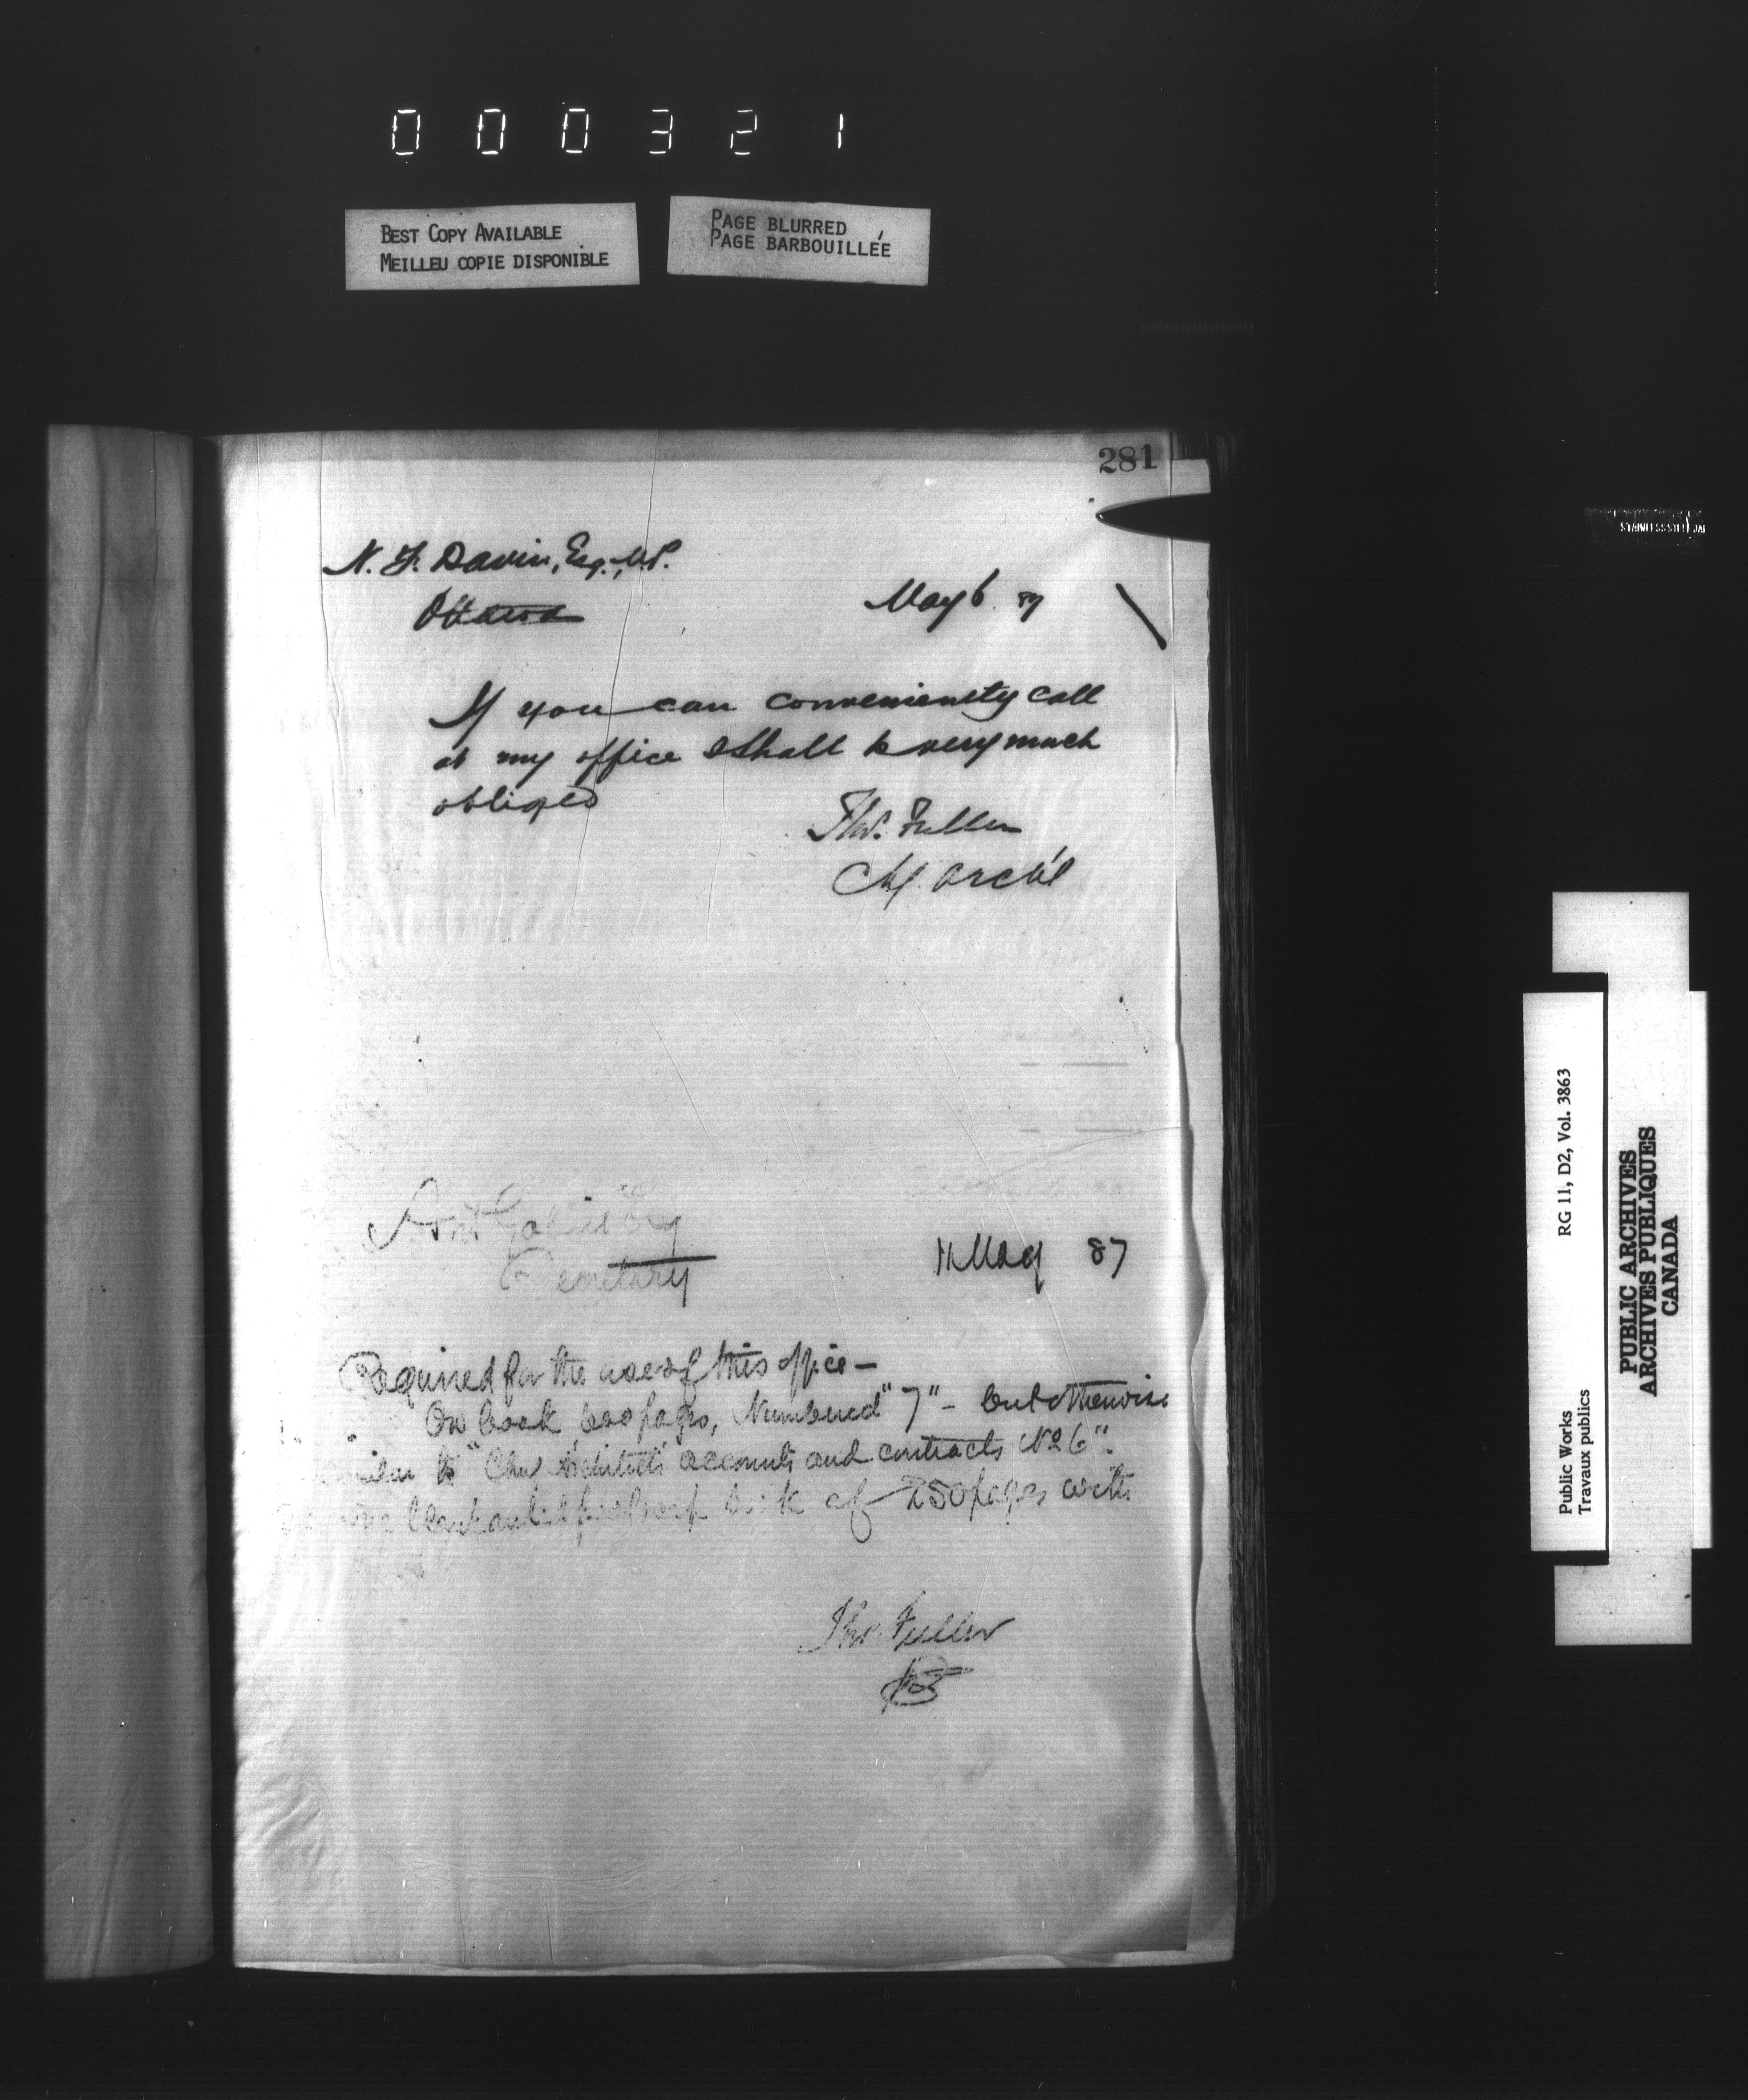 000321
BEST COPY AVAILABLE
MEILLEU COPIE DISPONIBLE
PAGE BLURRED
PAGE BARBOUILLÉE
281
N. F. Davin, Esq., M.P.
Ottawa
May 6 87
If you can conveniently call
at my office I shall be very much
obliged
Thos. Fuller
Ch. Arch't
Ant Gobeil Esq
Secretary
11 May 87
Required for the use of this office —
One book, 600 pages, Numbered "7" - but otherwise
similar to "Chief Architect's accounts and contracts No 6".
book of 250 pages with
Thos. Fuller
Public Works
Travaux publics
RG 11, D2, Vol. 3863
PUBLIC ARCHIVES
ARCHIVES PUBLIQUES
CANADA